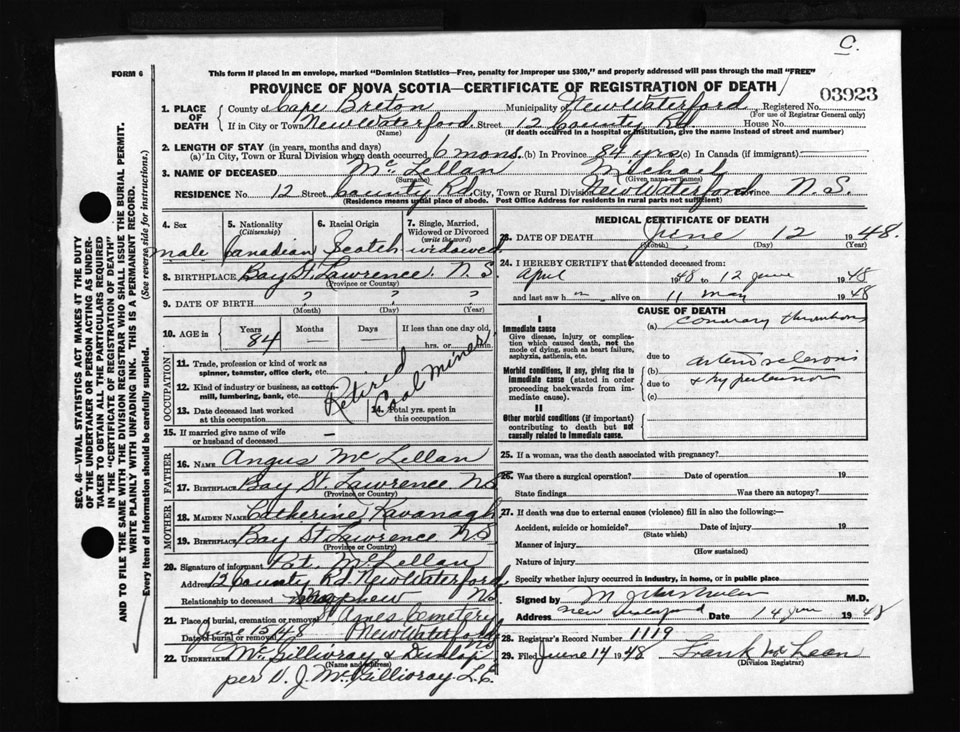 C.
FORM 6
This form if placed in an envelope, marked "Dominion Statistics—Free, penalty for improper use $300," and properly addressed will pass through the mail "FREE"
PROVINCE OF NOVA SCOTIA—CERTIFICATE OF REGISTRATION OF DEATH
03923
1. PLACE OF DEATH
County of Cape Breton Municipality New Waterford Registered No.
(For use of Registrar General only)
If in City or Town New Waterford Street 12 County Rd. House No.
(Name) (If death occurred in a hospital or institution, give the name instead of street and number)
2. LENGTH OF STAY (in years, months and days)
(a) In City, Town or Rural Division where death occurred 6 mons. (b) In Province 84 yrs (c) In Canada (if immigrant)
3. NAME OF DECEASED McLellan Michael
(Surname) (Given name or names)
RESIDENCE No. 12 Street County Rd City, Town or Rural Division New Waterford Province N.S.
(Residence means usual place of abode. Post Office Address for residents in rural parts not sufficient)
4. Sex 5. Nationality 6. Racial Origin 7. Single, Married, Widowed or Divorced
(Citizenship) (write the word)
male Canadian Scotch widowed
8. BIRTHPLACE Bay St. Lawrence N.S.
(Province or Country)
9. DATE OF BIRTH ? ? ?
(Month) (Day) (Year)
10. AGE in Years Months Days If less than one day old,
84 — — hrs. or min.
OCCUPATION
11. Trade, profession or kind of work as spinner, teamster, office clerk, etc.
12. Kind of industry or business, as cotton-mill, lumbering, bank, etc.
Retired Coal miner
13. Date deceased last worked at this occupation
14. Total yrs. spent in this occupation
15. If married give name of wife or husband of deceased —
FATHER
16. NAME Angus McLellan
17. BIRTHPLACE Bay St. Lawrence NS
(Province or Country)
MOTHER
18. MAIDEN NAME Catherine Kavanagh
19. BIRTHPLACE Bay St Lawrence NS
(Province or Country)
20. Signature of informant Pat. McLellan
Address 12 County Rd. New Waterford
Relationship to deceased nephew NS
21. Place of burial, cremation or removal St Agnes Cemetery
Date of burial or removal June 15/48 New Waterford
22. UNDERTAKER McGillivray & Dunlap
(Name and address)
per D. J. McGillivray L.E.
MEDICAL CERTIFICATE OF DEATH
23. DATE OF DEATH June 12 1948.
(Month) (Day) (Year)
24. I HEREBY CERTIFY that I attended deceased from:
April 1948 to 12 June 1948
and last saw h im alive on 11 may 1948
CAUSE OF DEATH
I
Immediate cause
Give disease, injury or complication which caused death, not the mode of dying, such as heart failure, asphyxia, asthenia, etc.
(a) coronary thrombosis
due to
Morbid conditions, if any, giving rise to immediate cause (stated in order proceeding backwards from immediate cause).
(b) arteriosclerosis
due to & hypertension
(c)
II
Other morbid conditions (if important) contributing to death but not causally related to immediate cause.
25. If a woman, was the death associated with pregnancy?
26. Was there a surgical operation? Date of operation 19
State findings Was there an autopsy?
27. If death was due to external causes (violence) fill in also the following:—
Accident, suicide or homicide? Date of injury 19
(State which)
Manner of injury
(How sustained)
Nature of injury
Specify whether injury occurred in industry, in home, or in public place
Signed by M.D.
Address New Waterford Date 14 June 1948
28. Registrar's Record Number 1119
29. Filed June 14 1948 Frank McLean
(Division Registrar)
SEC. 46—VITAL STATISTICS ACT MAKES IT THE DUTY
OF THE UNDERTAKER OR PERSON ACTING AS UNDER-
TAKER TO OBTAIN ALL THE PARTICULARS REQUIRED
IN THE "CERTIFICATE OF REGISTRATION OF DEATH"
AND TO FILE THE SAME WITH THE DIVISION REGISTRAR WHO SHALL ISSUE THE BURIAL PERMIT.
WRITE PLAINLY WITH UNFADING INK. THIS IS A PERMANENT RECORD.
Every Item of Information should be carefully supplied. (See reverse side for instructions.)